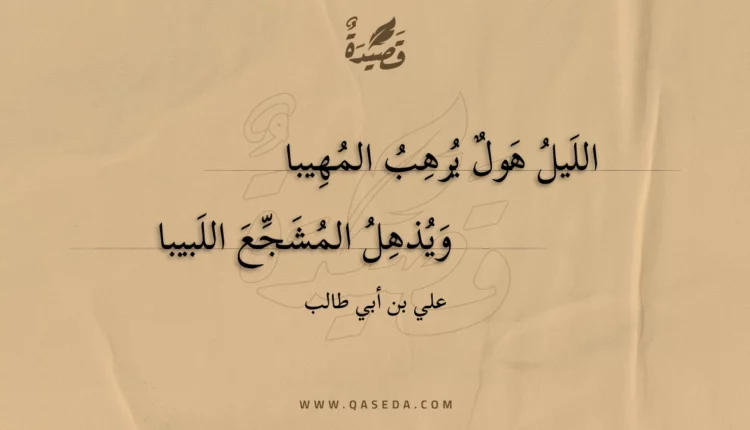 قَصِيدَةٌ
اللَيلُ هَولٌ يُرهِبُ المُهِيبا
وَيُذهِلُ المُشَجِّعَ اللَبيبا
علي بن أبي طالب
WWW.QASEDA.COM